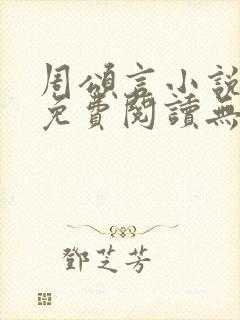 周頌言小説
免費閱讀無
鄧芝芳